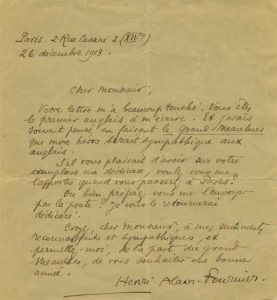 Paris. 2 Rue Cassini 2 (XIVe)
26 décembre 1913.
Cher Monsieur,
Votre lettre m'a beaucoup touché. Vous êtes
le premier anglais à m'écrire. Et j'avais
souvent pensé en faisant le Grand Meaulnes
que mon héros serait sympathique aux
anglais.
S'il vous plaisait d'avoir sur votre
exemplaire une dédicace, voulez-vous me
l'apporter quand vous passerez à Paris?
Ou bien préférez-vous me l'envoyer
par la poste? je vous le retournerai
dédicacé.
Croyez, cher Monsieur, à mes sentiments
reconnaissants et sympathiques, et
permettez-moi, de la part du grand
Meaulnes, de vous souhaiter une bonne
année.
Henri Alain-Fournier.